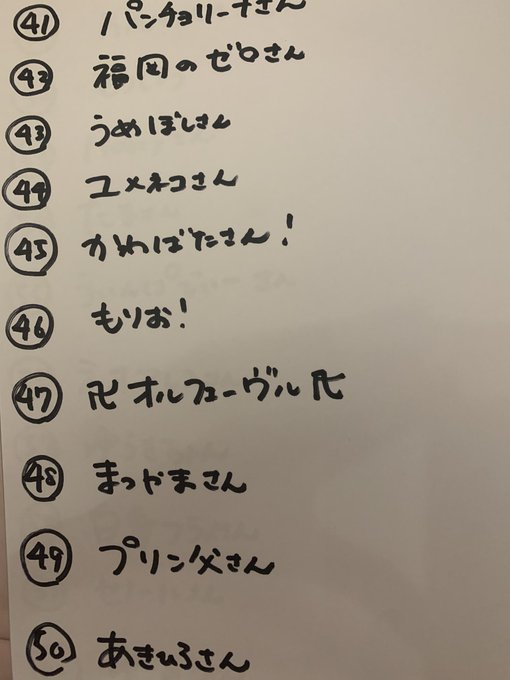 ㊶ パンチョリーナさん
㊷ 福岡のゼロさん
㊸ うめぼしさん
㊹ ユメネコさん
㊺ かわばたさん！
㊻ もりお！
㊼ 卍オルフェーヴル卍
㊽ まつやまさん
㊾ プリン父さん
㊿ あきひろさん